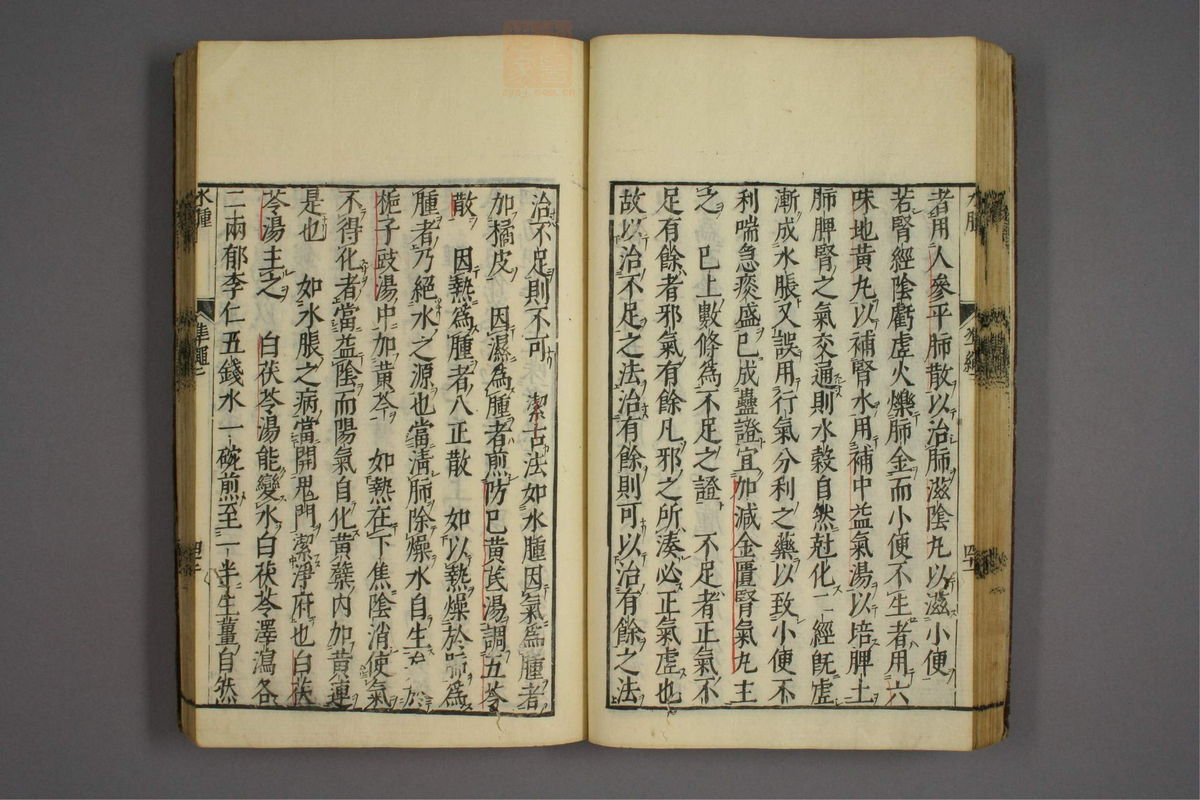 者用人參平肺散以治肺滋陰丸以滋小便
若腎經陰虧虛火爍肺金而小便不生者用六
味地黃丸以補腎水用補中益氣湯以培脾土
肺脾腎之氣交通則水穀自然尅化一經既虛
漸成水脹又誤用行氣分利之藥以致小便不
利喘急痰盛已成蠱證宜加減金匱腎氣丸主
之　已上數條爲不足之證　不足者正氣不
足有餘者邪氣有餘凡邪之所湊必正氣虛也
故以治不足之法治有餘則可以治有餘之法
治不足則不可　潔古法如水腫因氣爲腫者
加橘皮　因濕爲腫者煎防已黃芪湯調五苓
散　因熱爲腫者八正散　如以熱燥於肺爲
腫者乃絕水之源也當清肺除燥水自生　於
梔子豉湯中加黃芩　如熱在下焦陰消使氣
不得化者當益陰而陽氣自化黃蘗內加黃連
是也　如水脹之病當開鬼門潔淨府也白茯
苓湯主之　白茯苓湯能變水白茯苓澤瀉各
二兩郁李仁五錢水一碗煎至一半生薑自然
水腫
準繩